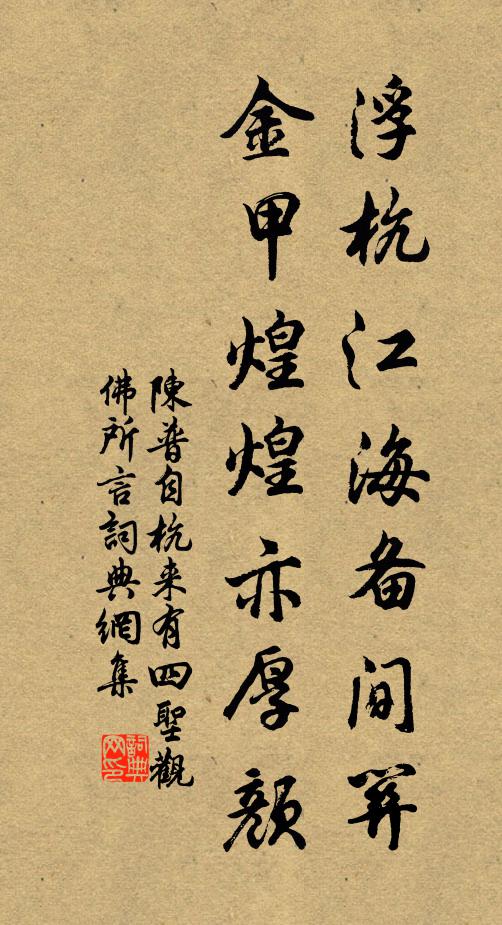 浮杭江海备间关
金甲煌煌亦厚颜
陳普自杭来有四聖觀
佛所言詞典網集
詞典网印